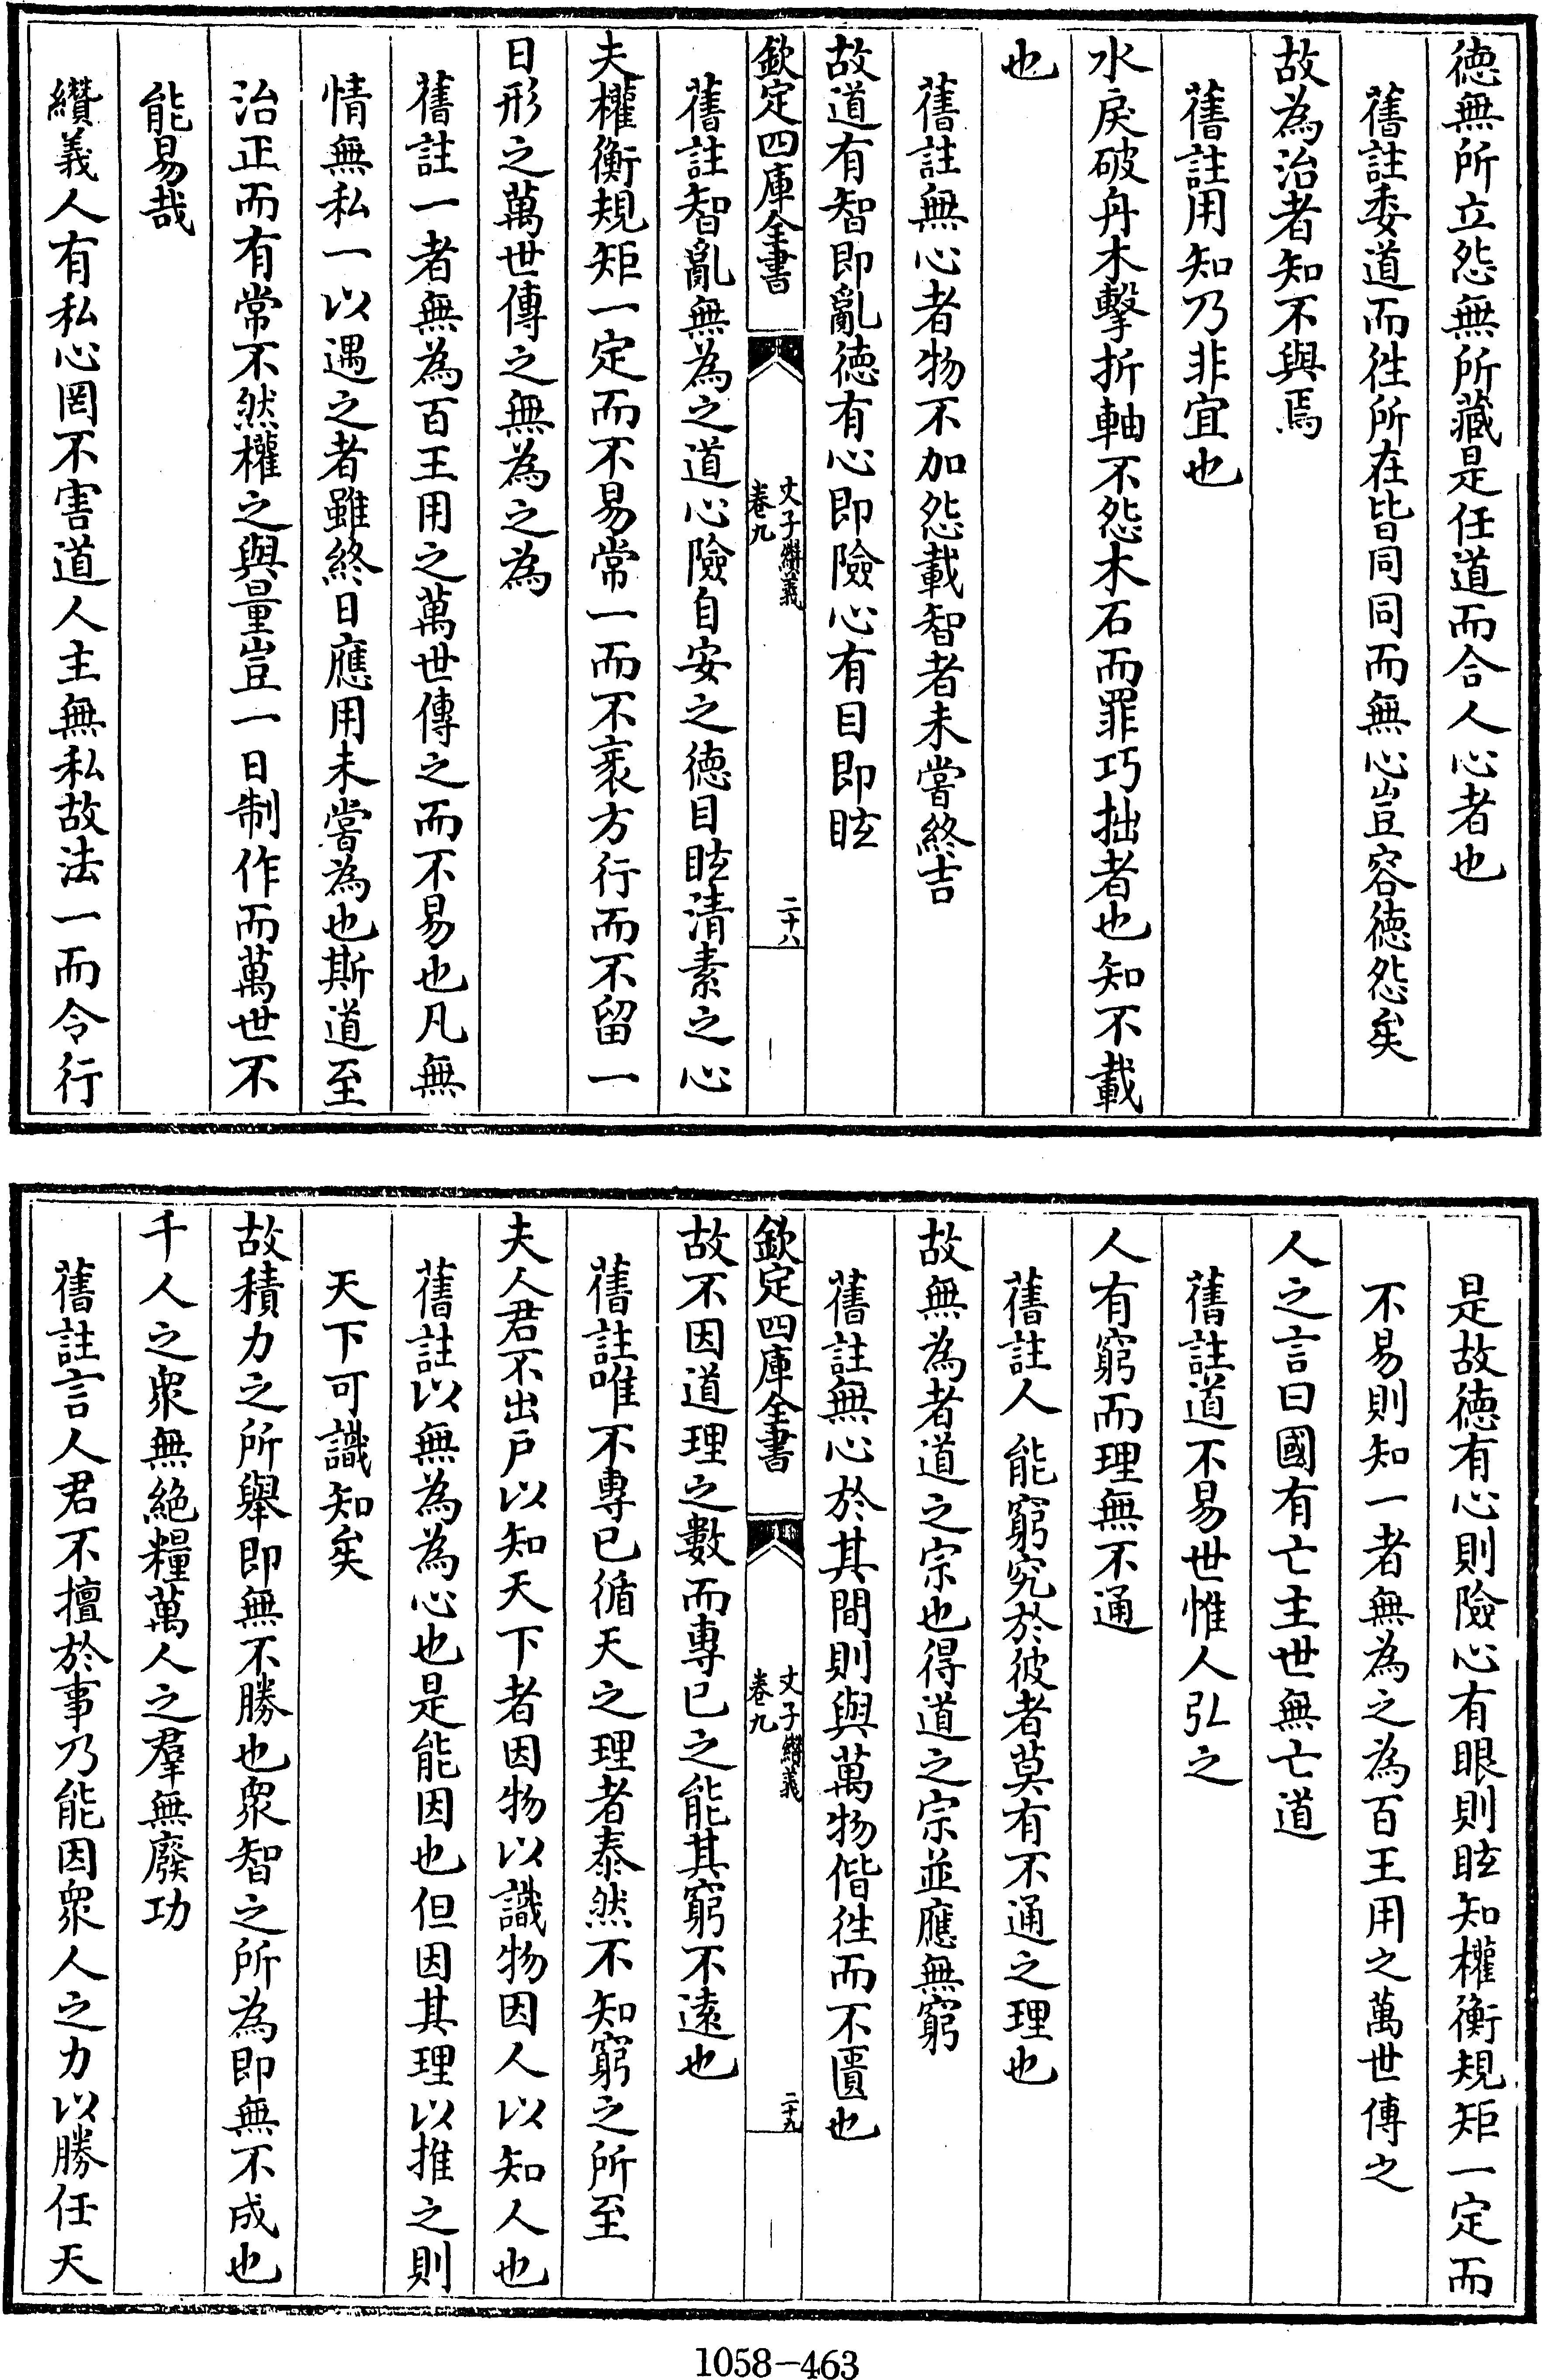 德無所立怨無所藏是任道而合人心者也
舊註委道而徃所在皆同同而無心豈容徳怨矣
故為治者知不與焉
舊註用知乃非宜也
水戾破舟木擊折軸不怨木石而罪巧拙者也知不載
也
舊註無心者物不加怨載智者未嘗終吉
故道有智即亂徳有心即險心有目即眩
欽定四庫全書
文子纉義
卷九
二十八
舊註智亂無為之道心險自安之徳目眩清素之心
夫權衡規矩一定而不易常一而不衺方行而不留一
日形之萬世傳之無為之為
舊註一者無為百王用之萬世傳之而不易也凡無
情無私一以遇之者雖終日應用未嘗為也斯道至
治正而有常不然權之與量豈一日制作而萬世不
能易哉
纉義人有私心罔不害道人主無私故法一而令行
是故徳有心則險心有眼則眩知權衡規矩一定而
不易則知一者無為之為百王用之萬世傳之
人之言曰國有亡主世無亡道
舊註道不易世惟人弘之
人有窮而理無不通
舊註人能窮究於彼者莫有不通之理也
故無為者道之宗也得道之宗並應無窮
舊註無心於其間則與萬物偕徃而不匱也
欽定四庫全書
文子纉義
卷九
二十九
故不因道理之數而專已之能其窮不逺也
舊註唯不專已循天之理者泰然不知窮之所至
夫人君不出戸以知天下者因物以識物因人以知人也
舊註以無為為心也是能因也但因其理以推之則
天下可識知矣
故積力之所舉即無不勝也衆智之所為即無不成也
千人之衆無絶糧萬人之羣無廢功
舊註言人君不擅於事乃能因衆人之力以勝任天
1058-463